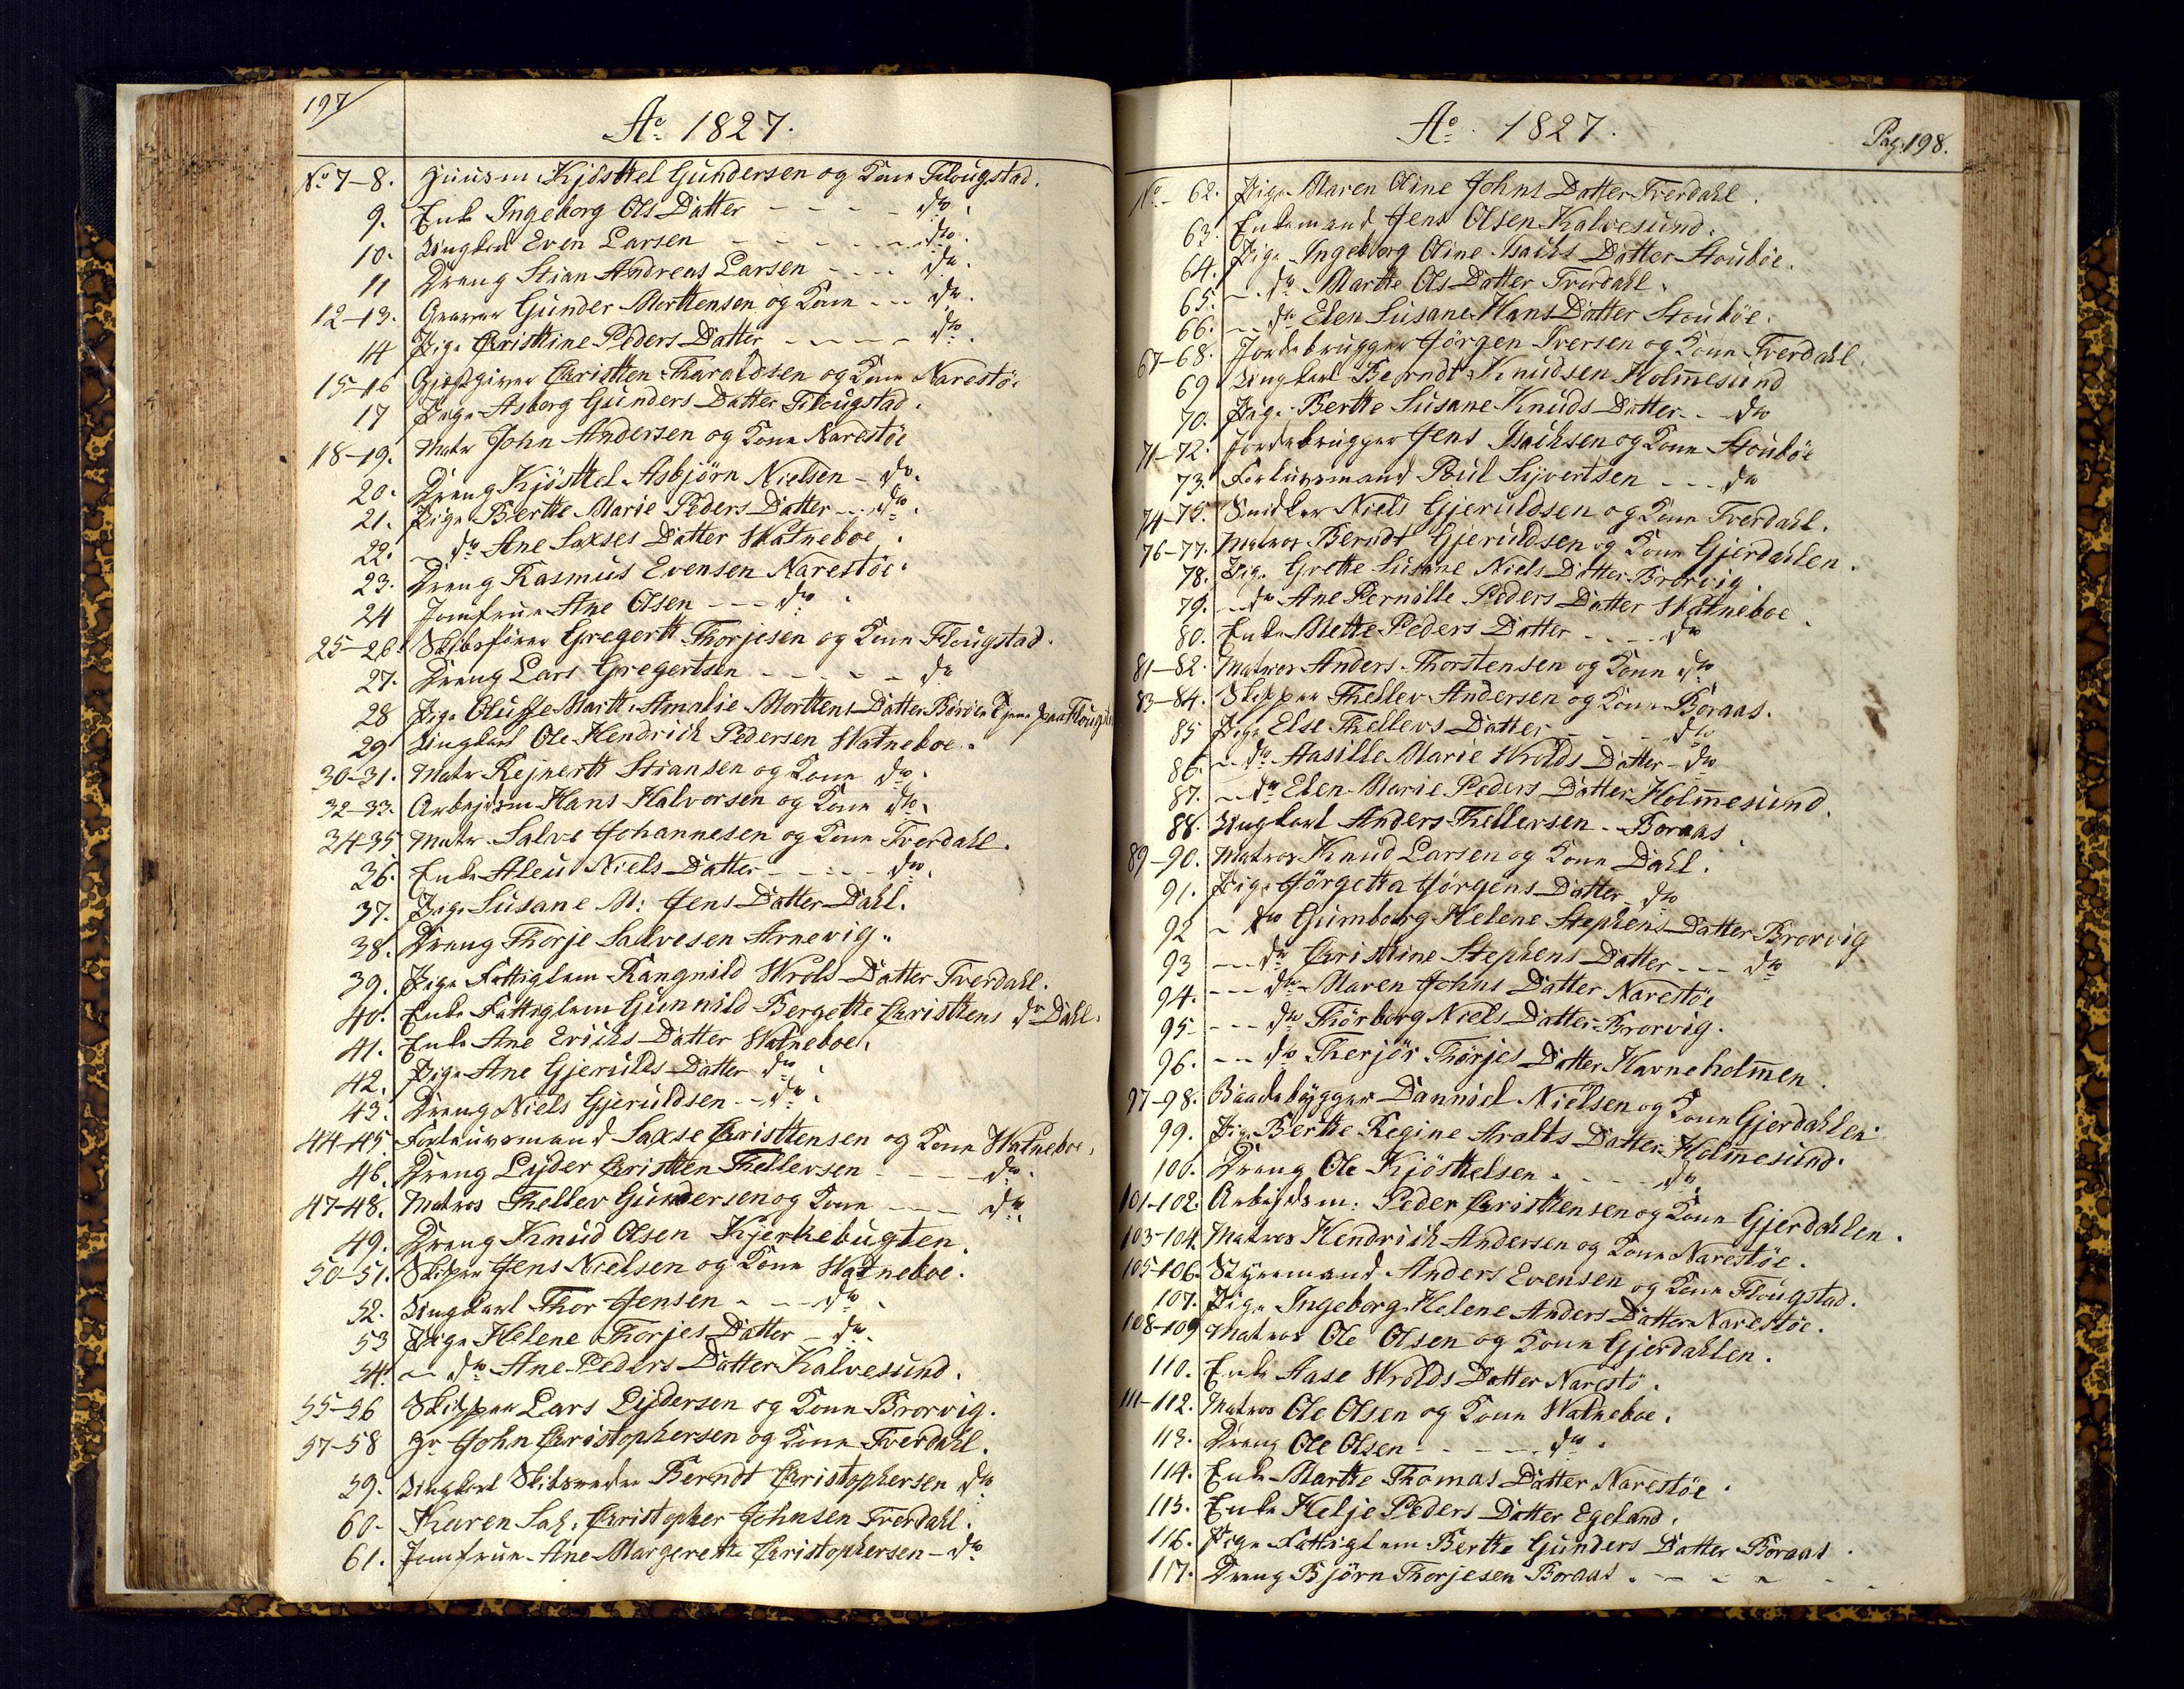 197
Ao 1827.
No 7-8. Huusm: Kjösttel Gundersen og Kone Flougstad.
9. Enke Ingeborg Ols Datter - - - - do.
10. Ungkarl Even Larsen - - - - - do.
11 Dreng Stian Andreas Larsen - - - do.
12-13. Graver Gunder Morttensen og Kone - - do.
14 Pige Christtine Peders Datter - - - - do.
15-16 Gjestgiver Christten Tharaldsen og Kone Narestö.
17 Pige Asborg Gunders Datter Flougstad.
18-19. Matr John Andersen og Kone Narestöe
20. Dreng Kjösttel Asbjörn Nielsen - do.
21. Pige Bertte Marie Peders Datter - - do.
22. - do Ane Saxses Datter Watneboe.
23. Dreng Rasmus Evensen Narestöe.
24 Jomfrue Ane Olsen - - - do.
25-26. Skibsförer Gregertt Thorjesen og Kone Flougstad.
27. Dreng Lars Gregertsen - - - - do
28 Pige Oluffe Martte Amalie Morttens Datter Böröen Tjener paa Flougst
29 Ungkarl Ole Hendrich Pedersen Watneboe.
30-31. Matr Rejnertt Stiansen og Kone do.
32-33. Arbejdsm Hans Halvorsen og Kone do.
34-35 Matr. Salve Johannesen og Kone Tverdahl.
36. Enke Aleu Niels Datter - - - - do.
37. Pige Susane M: Jens Datter Dahl.
38. Dreng Thorje Salvesen Arnevig.
39. Pige Fattiglem Rangnild Wrols Datter Tverdahl.
40. Enke Fattiglem Gunnild Bergette Christtens dr Dahl.
41. Enke Ane Erichs Datter Watneboe.
42. Pige Ane Gjerulds Datter do.
43. Dreng Niels Gjeruldsen - - do.
44-45. Forleuvsmand Saxse Christtensen og Kone Watneboe.
46. Dreng Lyder Christten Thellevsen - - - - do.
47-48. Matros Thellev Gundersen og Kone - - - do.
49. Dreng Knud Olsen Kjerkebugten.
50-51. Skipper Jens Nielsen og Kone Watneboe.
52. Ungkarl Thor Jensen - - - do.
53 Pige Helene Thorjes Datter - do.
54. - do Ane Peders Datter Kalvesund.
55-56 Skipper Lars Lydersen og Kone Brorvig.
57-58 Hr John Christophersen og Kone Tverdahl.
59. Ungkarl Skibsreder Berndt Christophersen do
60. Karen Sal. Christopher Johnsen Tverdahl.
61. Jomfrue Ane Margrette Christophersen - do
Ao. 1827.
Pag: 198.
No - 62. Pige Maren Oline Johns Datter Tverdahl.
63. Enkemand Jens Olsen Kalvesund.
64. Pige Ingeborg Oline Isachs Datter Stouböe.
65. - do Martte Ols Datter Tverdahl.
66. - - do Elen Susane Hans Datter Stouböe.
67-68. Jordebrugger Jörgen Iversen og Kone Tverdahl.
69 Ungkarl Berndt Knudsen Holmesund
70. Pige Bertte Susane Knuds Datter - - do
71-72. Jordebrugger Jens Isachsen og Kone Stouböe
73. Forleuvsmand Poul Syvertsen - - - do
74-75. Snidker Niels Gjeruldsen og Kone Tverdahl.
76-77. Matros Berndt Gjeruldsen og Kone Gjerdahlen.
78. Pige Grette Susane Niels Datter Brorvig.
79. - do Ane Pernille Peders Datter Watneboe.
80. Enke Mette Peders Datter - - - - do
81-82. Matros Anders Thorstensen og Kone do
83-84. Skipper Thellev Andersen og Kone Boraas.
85 Pige Else Thellevs Datter - - - do
86. - do Aasille Marie Wrolds Datter - do
87. - do Elen Marie Peders Datter Holmesund.
88. Ungkarl Anders Thellevsen - Boraas
89-90. Matros Knud Larsen og Kone Dahl.
91. Pige Jörgetta Jörgens Datter do
92 - do Gumborg Helene Stephens Datter Brorvig
93 - - do Christtine Stephens Datter - - - do
94. - - - do Maren Johns Datter Narestöe
95 - - - do Thörborg Niels Datter Brorvig.
96. - - do Therjör Thörjes Datter Havneholmen.
97-98. Baadebygger Danniel Nielsen og Kone Gjerdahlen
99. Pige Bertte Regine Aralts Datter Holmesund.
100. Dreng Ole Kjösttelsen - - - - do.
101-102. Arbejdsm: Peder Christtensen og Kone Gjerdahlen.
103-104 Matros Hendrich Andersen og Kone Narestöe.
105-106. Styrmand Anders Evensen og Kone Flougstad.
107. Pige Ingeborg Helene Anders Datter Narestöe.
108-109 Matros Ole Olsen og Kone Gjerdahlen.
110. Enke Aase Wrolds Datter Narestö.
111-112. Matros Ole Olsen og Kone Watneboe.
113. Dreng Ole Olsen - - - - do.
114. Enke Martte Thomas Datter Narestöe.
115. Enke Helje Peders Datter Egeland.
116. Pige Fattiglem Bertte Gunders Datter Boraas.
117. Dreng Björn Thorjesen Boraas. - - - - -